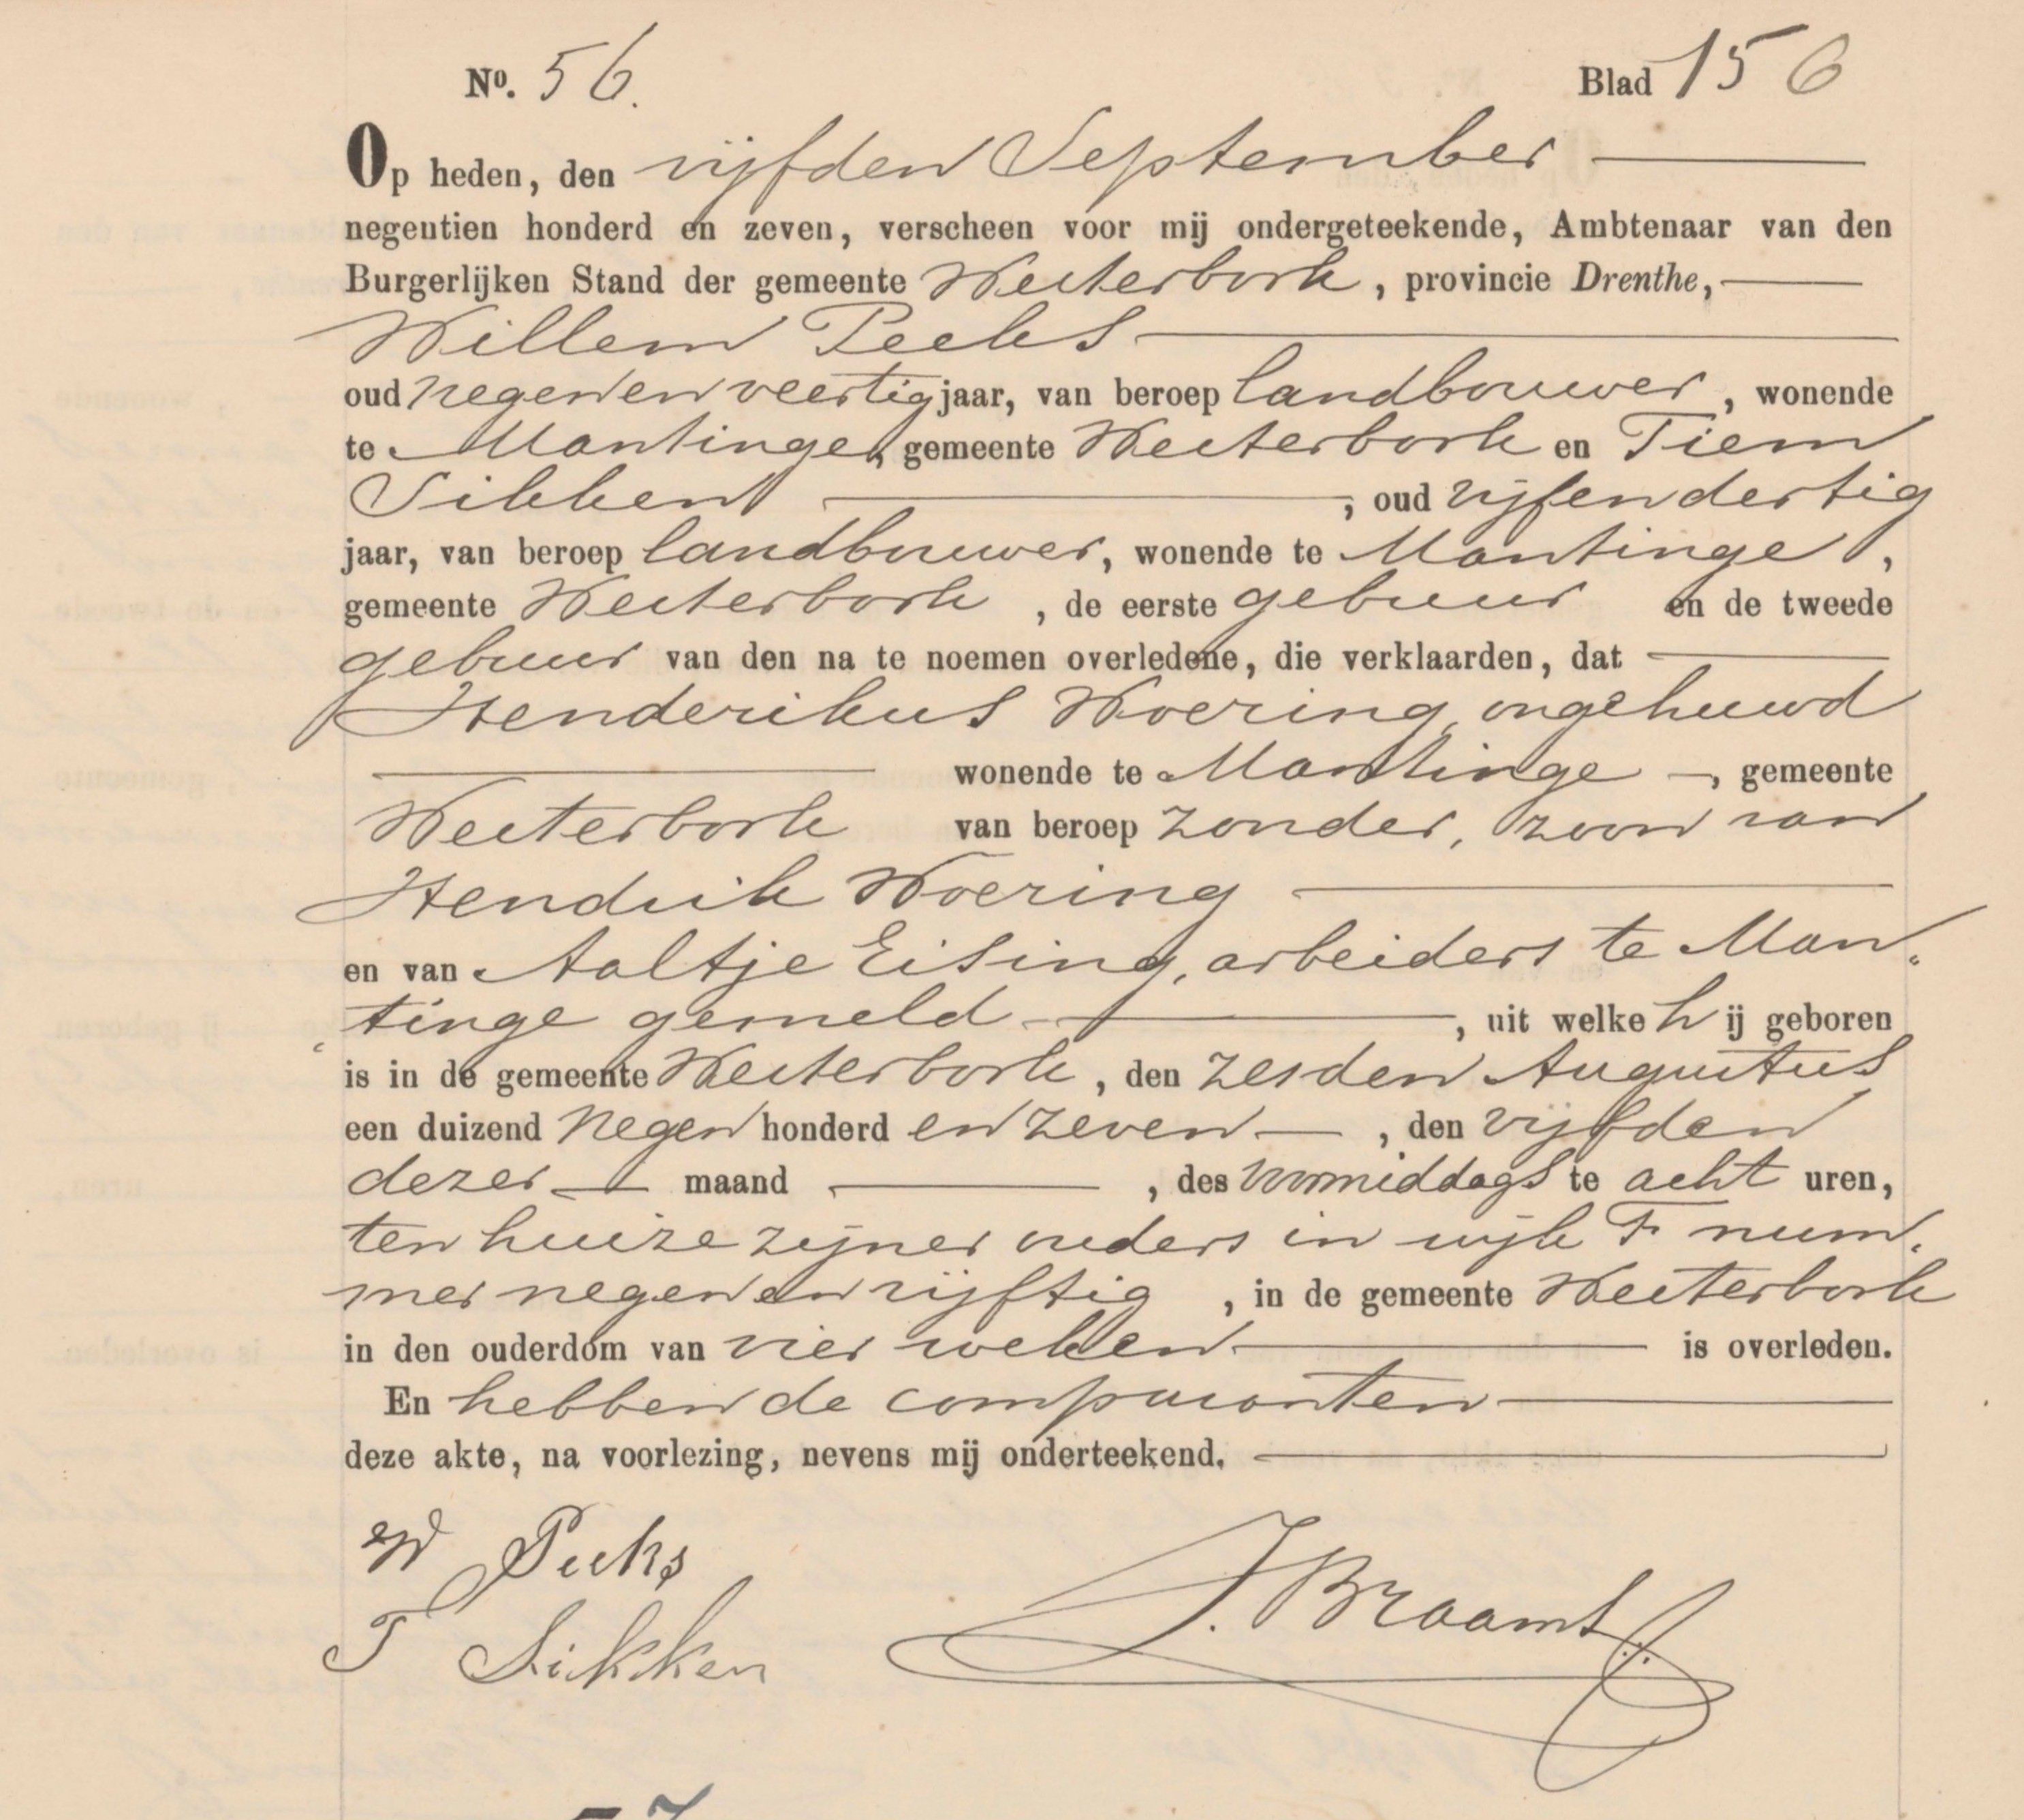 No. 56. Blad 156
Op heden, den vijfden September
negentien honderd en zeven, verscheen voor mij ondergeteekende, Ambtenaar van den
Burgerlijken Stand der gemeente Westerbork, provincie Drenthe,
Willem Peeks
oud negen en veertig jaar, van beroep landbouwer, wonende
te Mantinge, gemeente Westerbork en Tiem
Sikken, oud vijf en dertig
jaar, van beroep landbouwer, wonende te Mantinge,
gemeente Westerbork, de eerste gebuur en de tweede
gebuur van den na te noemen overledene, die verklaarden, dat
Henderikus Woering, ongehuwd
wonende te Mantinge, gemeente
Westerbork van beroep zonder, zoon van
Hendrik Woering
en van Aaltje Eising, arbeiders te Man„
„tinge gemeld, uit welke hij geboren
is in de gemeente Westerbork, den zesden Augustus
een duizend negen honderd en zeven, den vijfden
dezer maand, des voormiddags te acht uren,
ten huize zijner ouders in wijk F num„
mer negen en vijftig, in de gemeente Westerbork
in den ouderdom van vier weken is overleden.
En hebben de comparanten
deze akte, na voorlezing, nevens mij onderteekend.
W Peeks
J. Braams
T Sikken
57